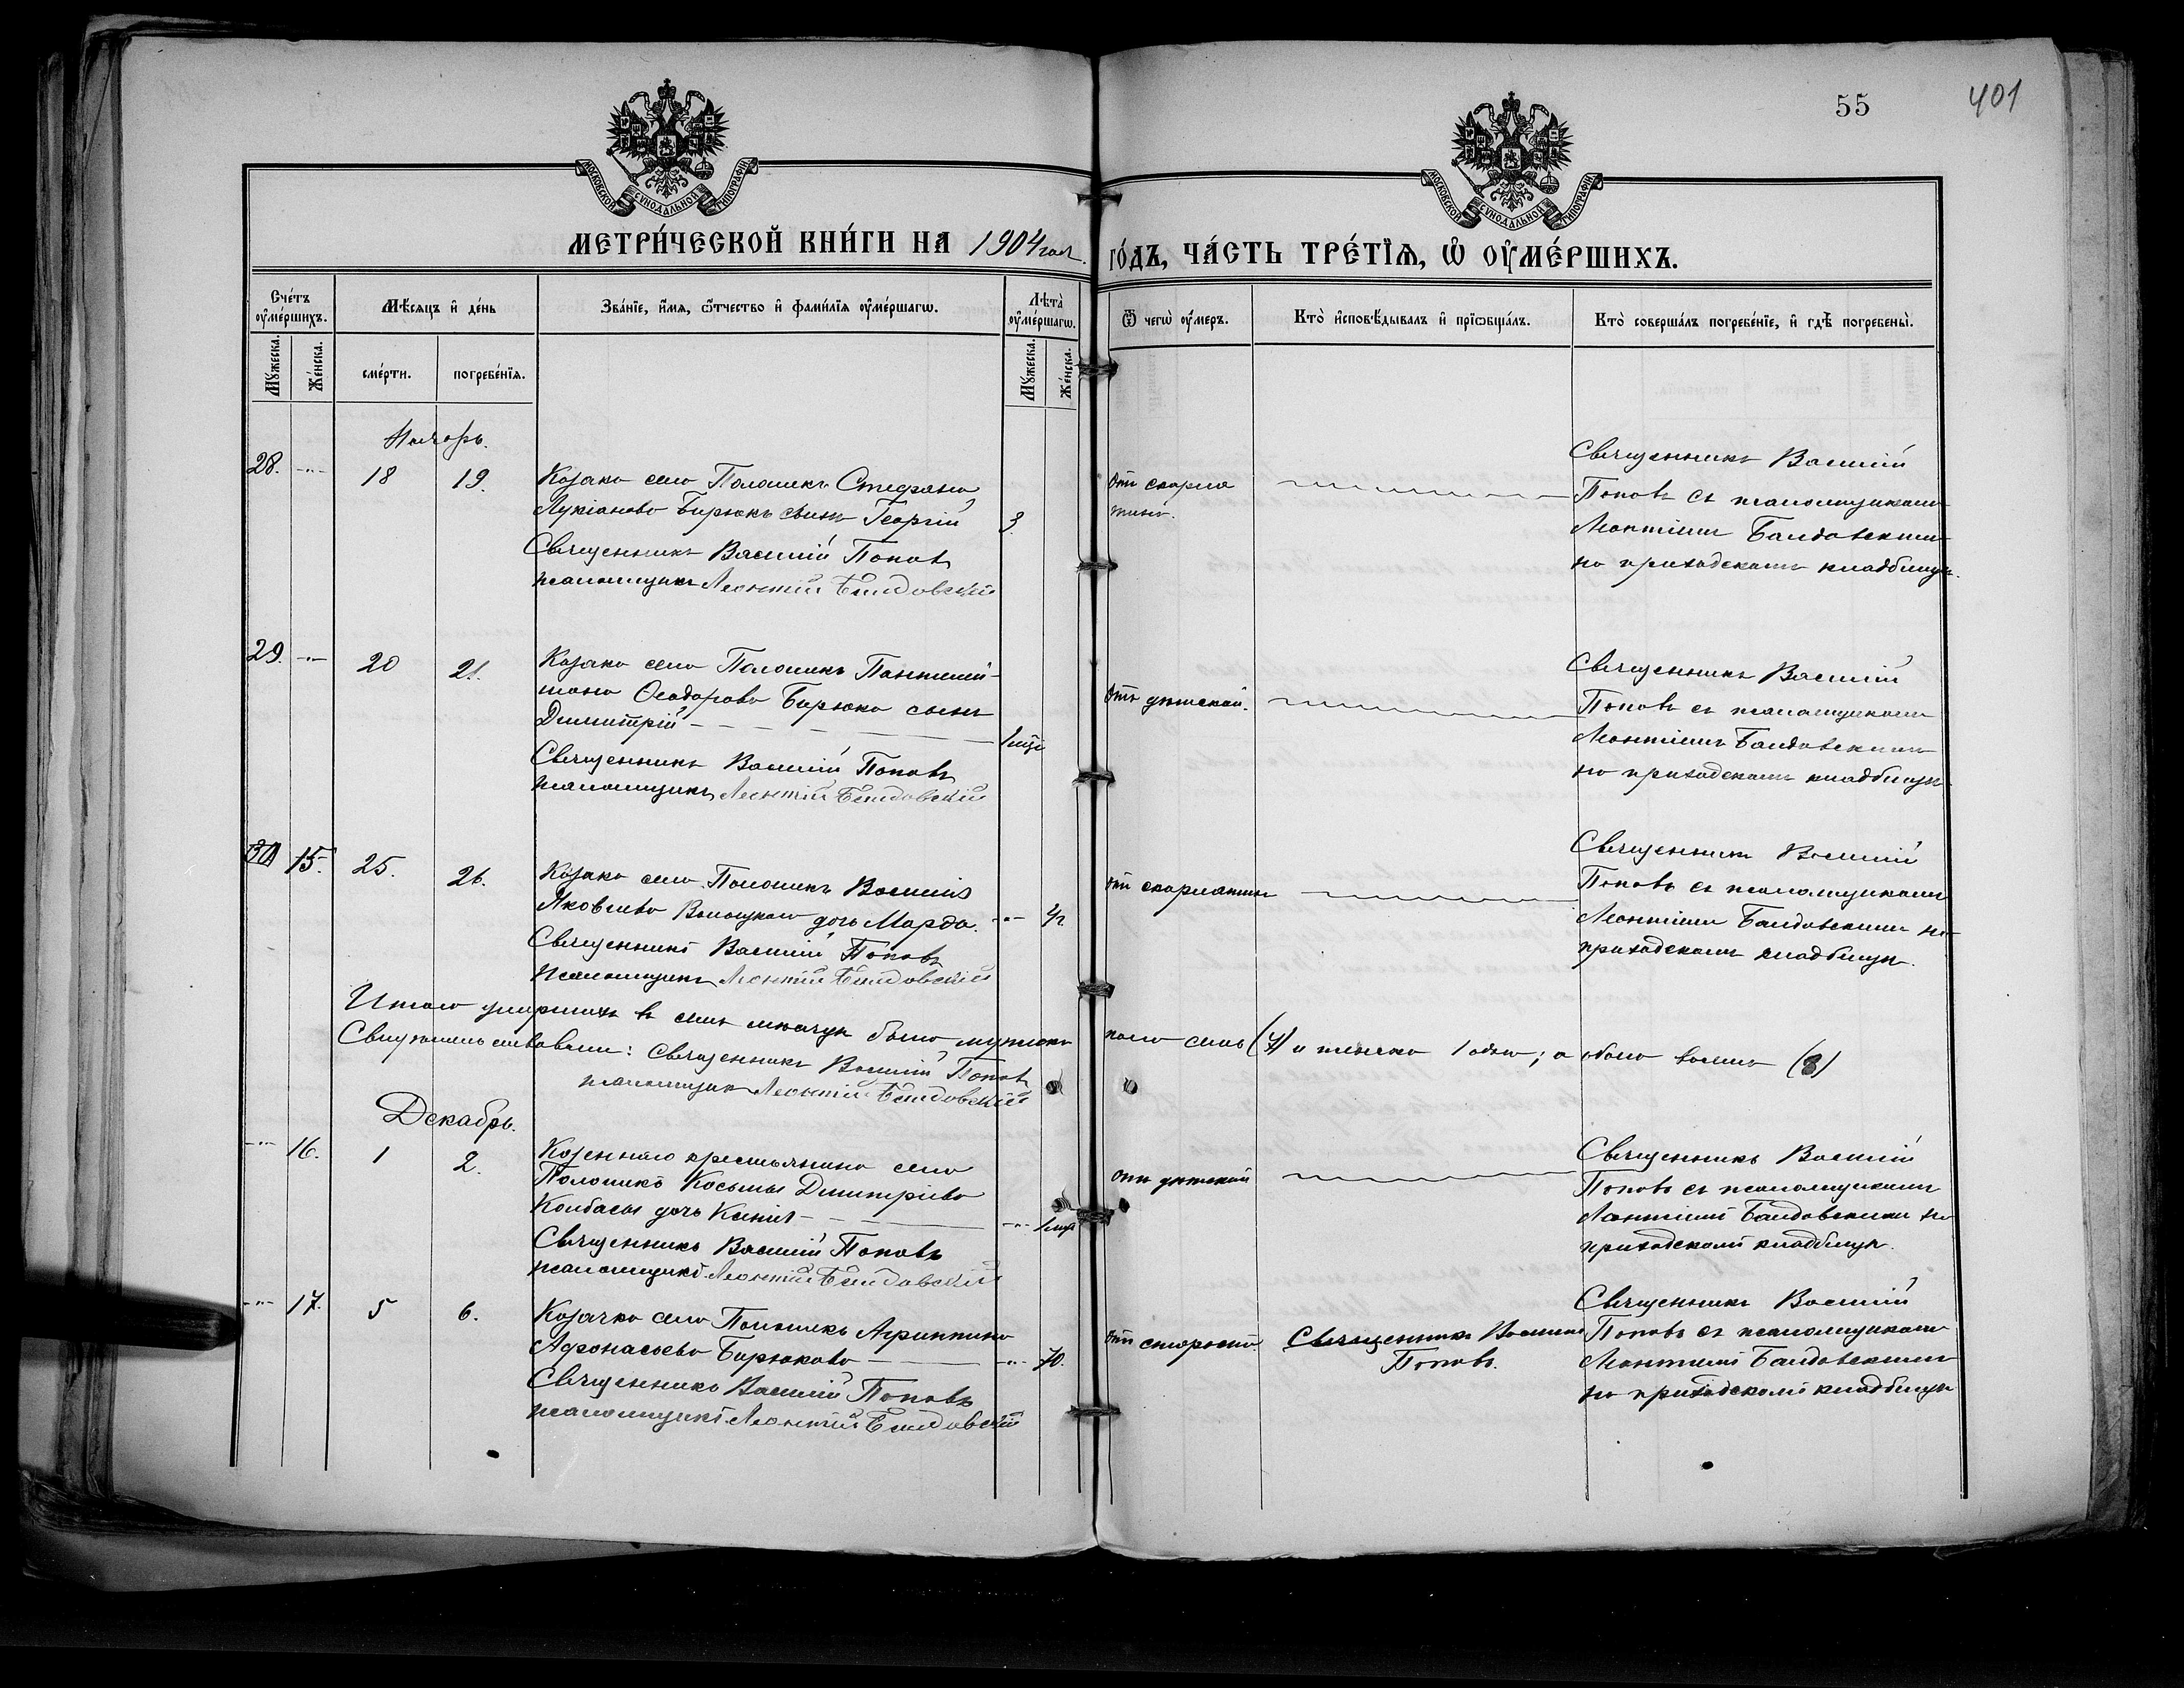 55
401
МОСКОВСКОЙ СѴНОДАЛЬНОЙ ТИПОГРАФІИ
МОСКОВСКОЙ СѴНОДАЛЬНОЙ ТИПОГРАФІИ
МЕТРИ́ЧЕСКОЙ КНИ́ГИ НА 1904 года.
ГО́ДЪ, ЧА́СТЬ ТРЕ́ТІѦ, Ѿ ОУМЕ́РШИХЪ.
Сче́тъ оумершихъ.
Мѣсяцъ и де́нь
Зва́ніе, и́мя, ѿтчество и фами́лія оуме́ршагѡ.
Лѣта̀ оуме́ршагѡ.
Ѿ чегѡ̀ оу́меръ.
Кто̀ и҆сповѣ́дывалъ и прїѡбща́лъ.
Кто̀ соверша́лъ погребе́ніе, и гдѣ̀ погребены̀.
Му́жеска.
Же́нска.
сме́рти.
погребе́нія.
Му́жеска.
Же́нска.
Ноябрь.
28. -"- 18 19.
Козака села Полошекъ Стефана
Лукіанова Бирюкъ сынъ Георгій
3
Священникъ Василій Поповъ
псаломщикъ Леонтій Бандовскій
Отъ скарла
тины.
Священникъ Василій
Поповъ съ псаломщикомъ
Леонтіемъ Бандовскимъ
на приходскомъ кладбищѣ.
29. -"- 20 21.
Козака села Полошекъ Пантелей-
мона Ѳеодорова Бирюка сынъ
Димитрій
Священникъ Василій Поповъ
псаломщикъ Леонтій Бандовскій
Отъ дѣтской.
Священникъ Василій
Поповъ съ псаломщикомъ
Леонтіемъ Бандовскимъ
на приходскомъ кладбищѣ
30 15. 25. 26.
Козака села Полошекъ Василія
Яковлева дочь Марѳа. -"- 4г.
Священникъ Василій Поповъ
Псаломщикъ Леонтій Бандовскій
Отъ скарлатины
Священникъ Василій
Поповъ съ псаломщикомъ
Леонтіемъ Бандовскимъ на
приходскомъ кладбищѣ.
Итого умершихъ въ семъ мѣсяцѣ было мужска
пола семь (7) и женска 1 одна; а обоего восемь (8)
Свидѣтельствовали: Священникъ Василій Поповъ
псаломщикъ Леонтій Бандовскій
Декабрь.
-"- 16. 1 2.
Казеннаго крестьянина села
Полошекъ Косьмы Димитріева
Колбасы дочь Ксенія -"-
Священникъ Василій Поповъ
псаломщикъ Леонтій Бандовскій
Отъ дѣтской
Священникъ Василій
Поповъ съ псаломщикомъ
Леонтіемъ Бандовскимъ на
приходскомъ кладбищѣ.
-"- 17. 5 6.
Козачка села Полошекъ Агриппина
Афонасьева Бирюкова -"- 70.
Священникъ Василій Поповъ
псаломщикъ Леонтій Бандовскій
Отъ старости.
Священникъ Василій
Поповъ.
Священникъ Василій
Поповъ съ псаломщикомъ
Леонтіемъ Бандовскимъ
на приходскомъ кладбищѣ